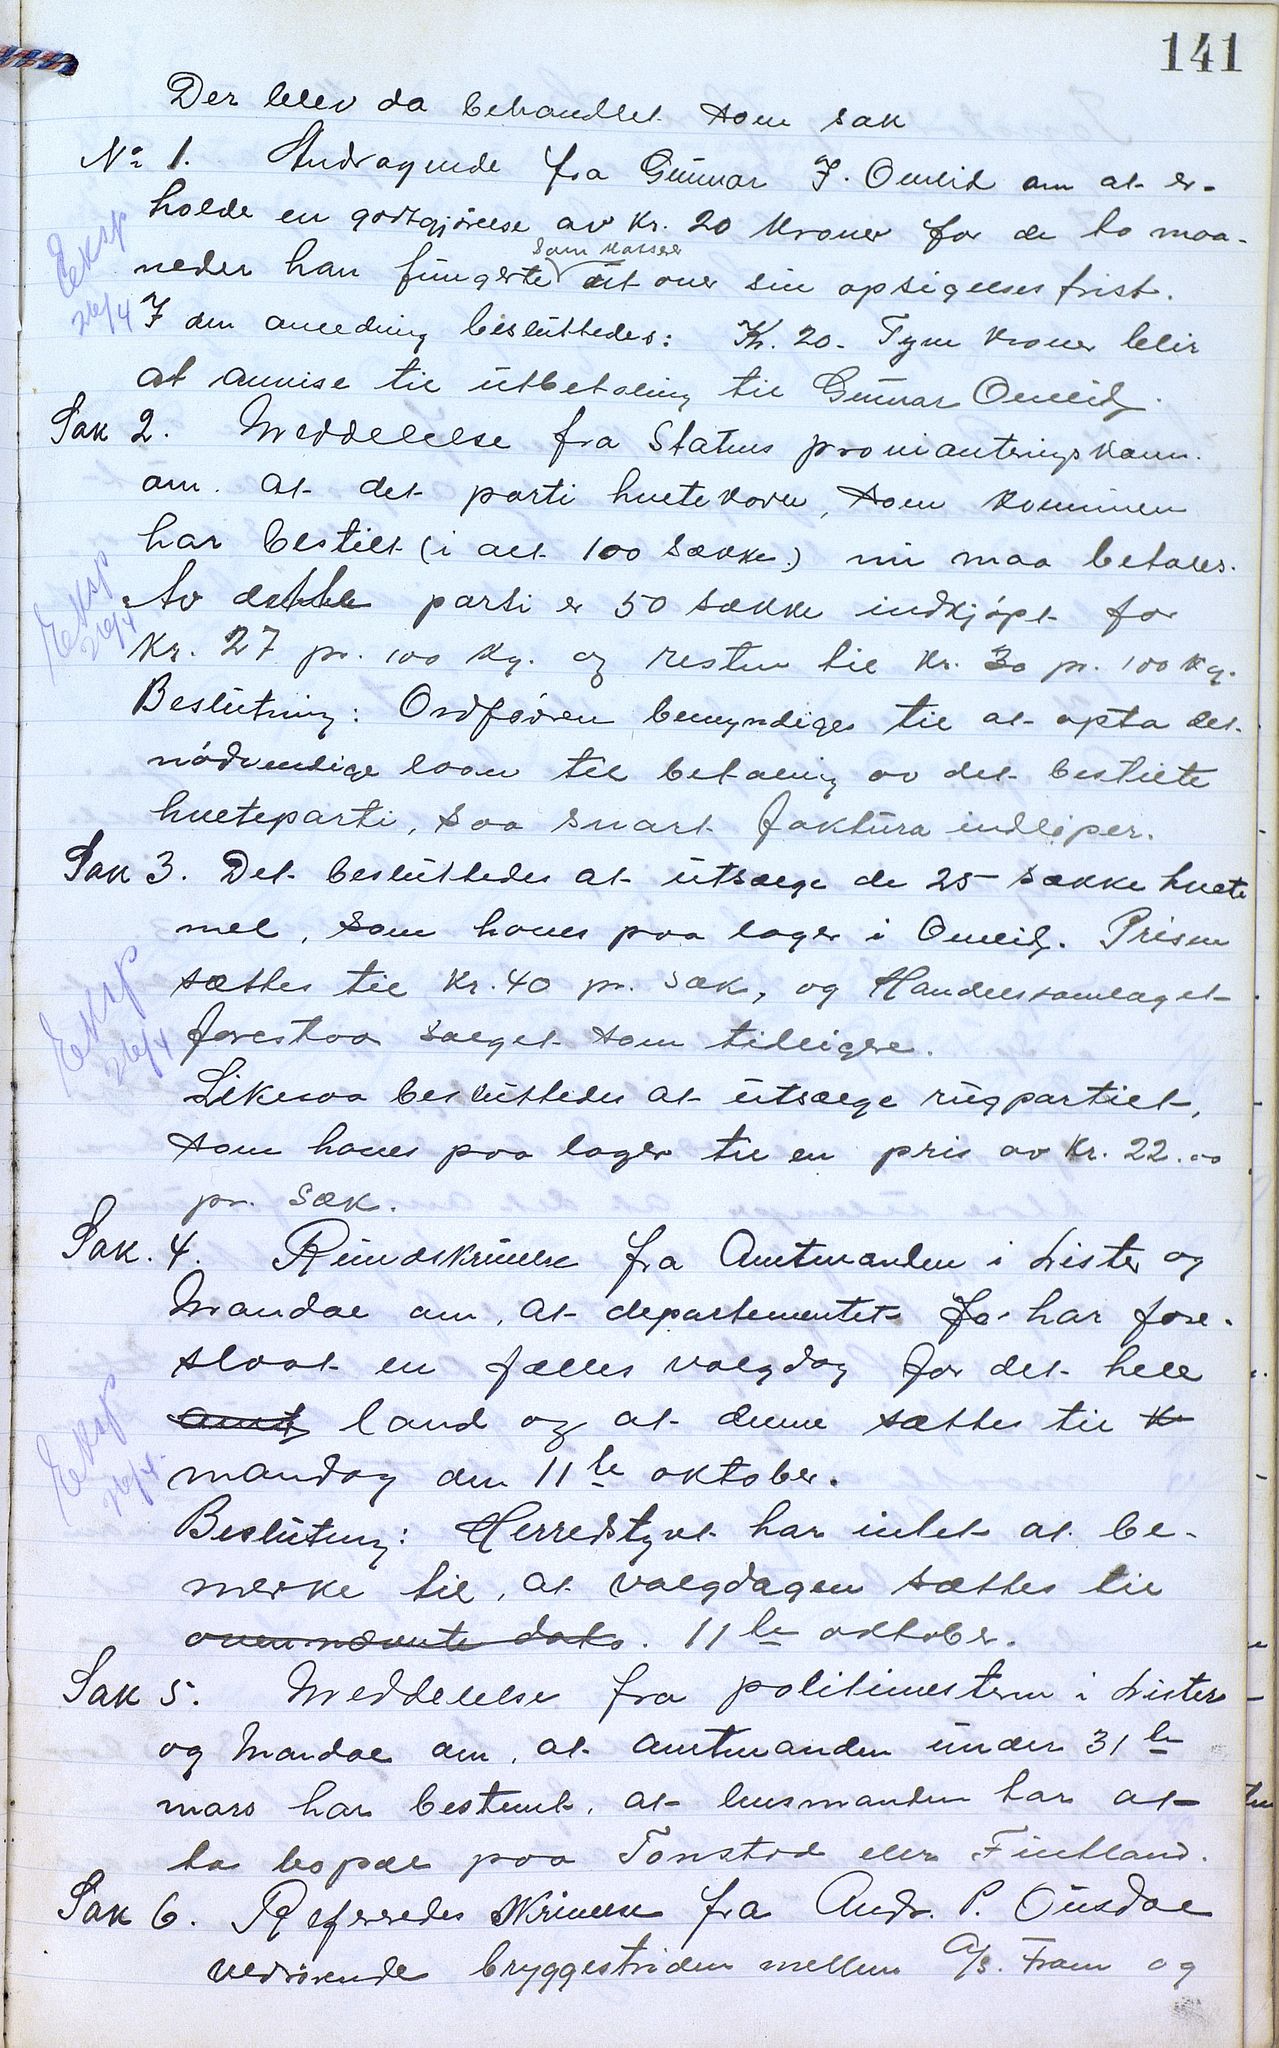 141
Der blev da behandlet som sak
No 1. Andragende fra Gunnar F. Omlid om at er-
holde en godtgjörelse av Kr. 20 kroner for de to maa-
neder han fungerte som kasserer ut over sin opsigelsesfrist.
I den anledning besluttedes: Kr. 20 - Tyve kroner blir
at anvise til utbetaling til Gunnar Omlid.
Sak 2. Meddelelse fra Statens provianteringskom.
om at det parti hvetekorn, som kommunen
har bestilt (i alt 100 sække) nu maa betales.
Av dette parti er 50 sække indkjøpt for
Kr. 27 pr. 100 kg. og resten til Kr. 30 pr. 100 kg.
Beslutning: Ordføreren bemyndiges til at opta det
nödvendige laan til betaling av det bestilte
hveteparti, saa snart faktura indløper.
Sak 3. Det besluttedes at utsælge de 25 sække hvete
mel, som haves paa lager i Omlid. Prisen
sættes til Kr. 40 pr. sæk, og Handelssamlaget
forestaa salget som tidligere.
Likesaa besluttedes at utsælge rugpartiet,
som haves paa lager til en pris av Kr. 22.00
pr. sæk.
Sak. 4. Rundskrivelse fra Amtmanden i Lister og
Mandal om, at departementet fo har fore-
slaat en fælles valgdag for det hele
amt land og at denne sættes til
mandag den 11te oktober.
Beslutning: Herredstyret har intet at be-
merke til, at valgdagen sættes til
ovennævnte dato. 11te oktober.
Sak 5. Meddelelse fra politimesteren i Lister
og Mandal om, at amtmanden under 31te
mars har bestemt, at lensmanden har at
ta bopæl paa Tonstad eller Fintland.
Sak 6. Referedes skrivelse fra Andr. P. Ousdal
vedrörende bryggestriden mellem A/s. Fram og
Eksp
26/4
Eksp
26/4
Eksp
26/4
Eksp
26/4